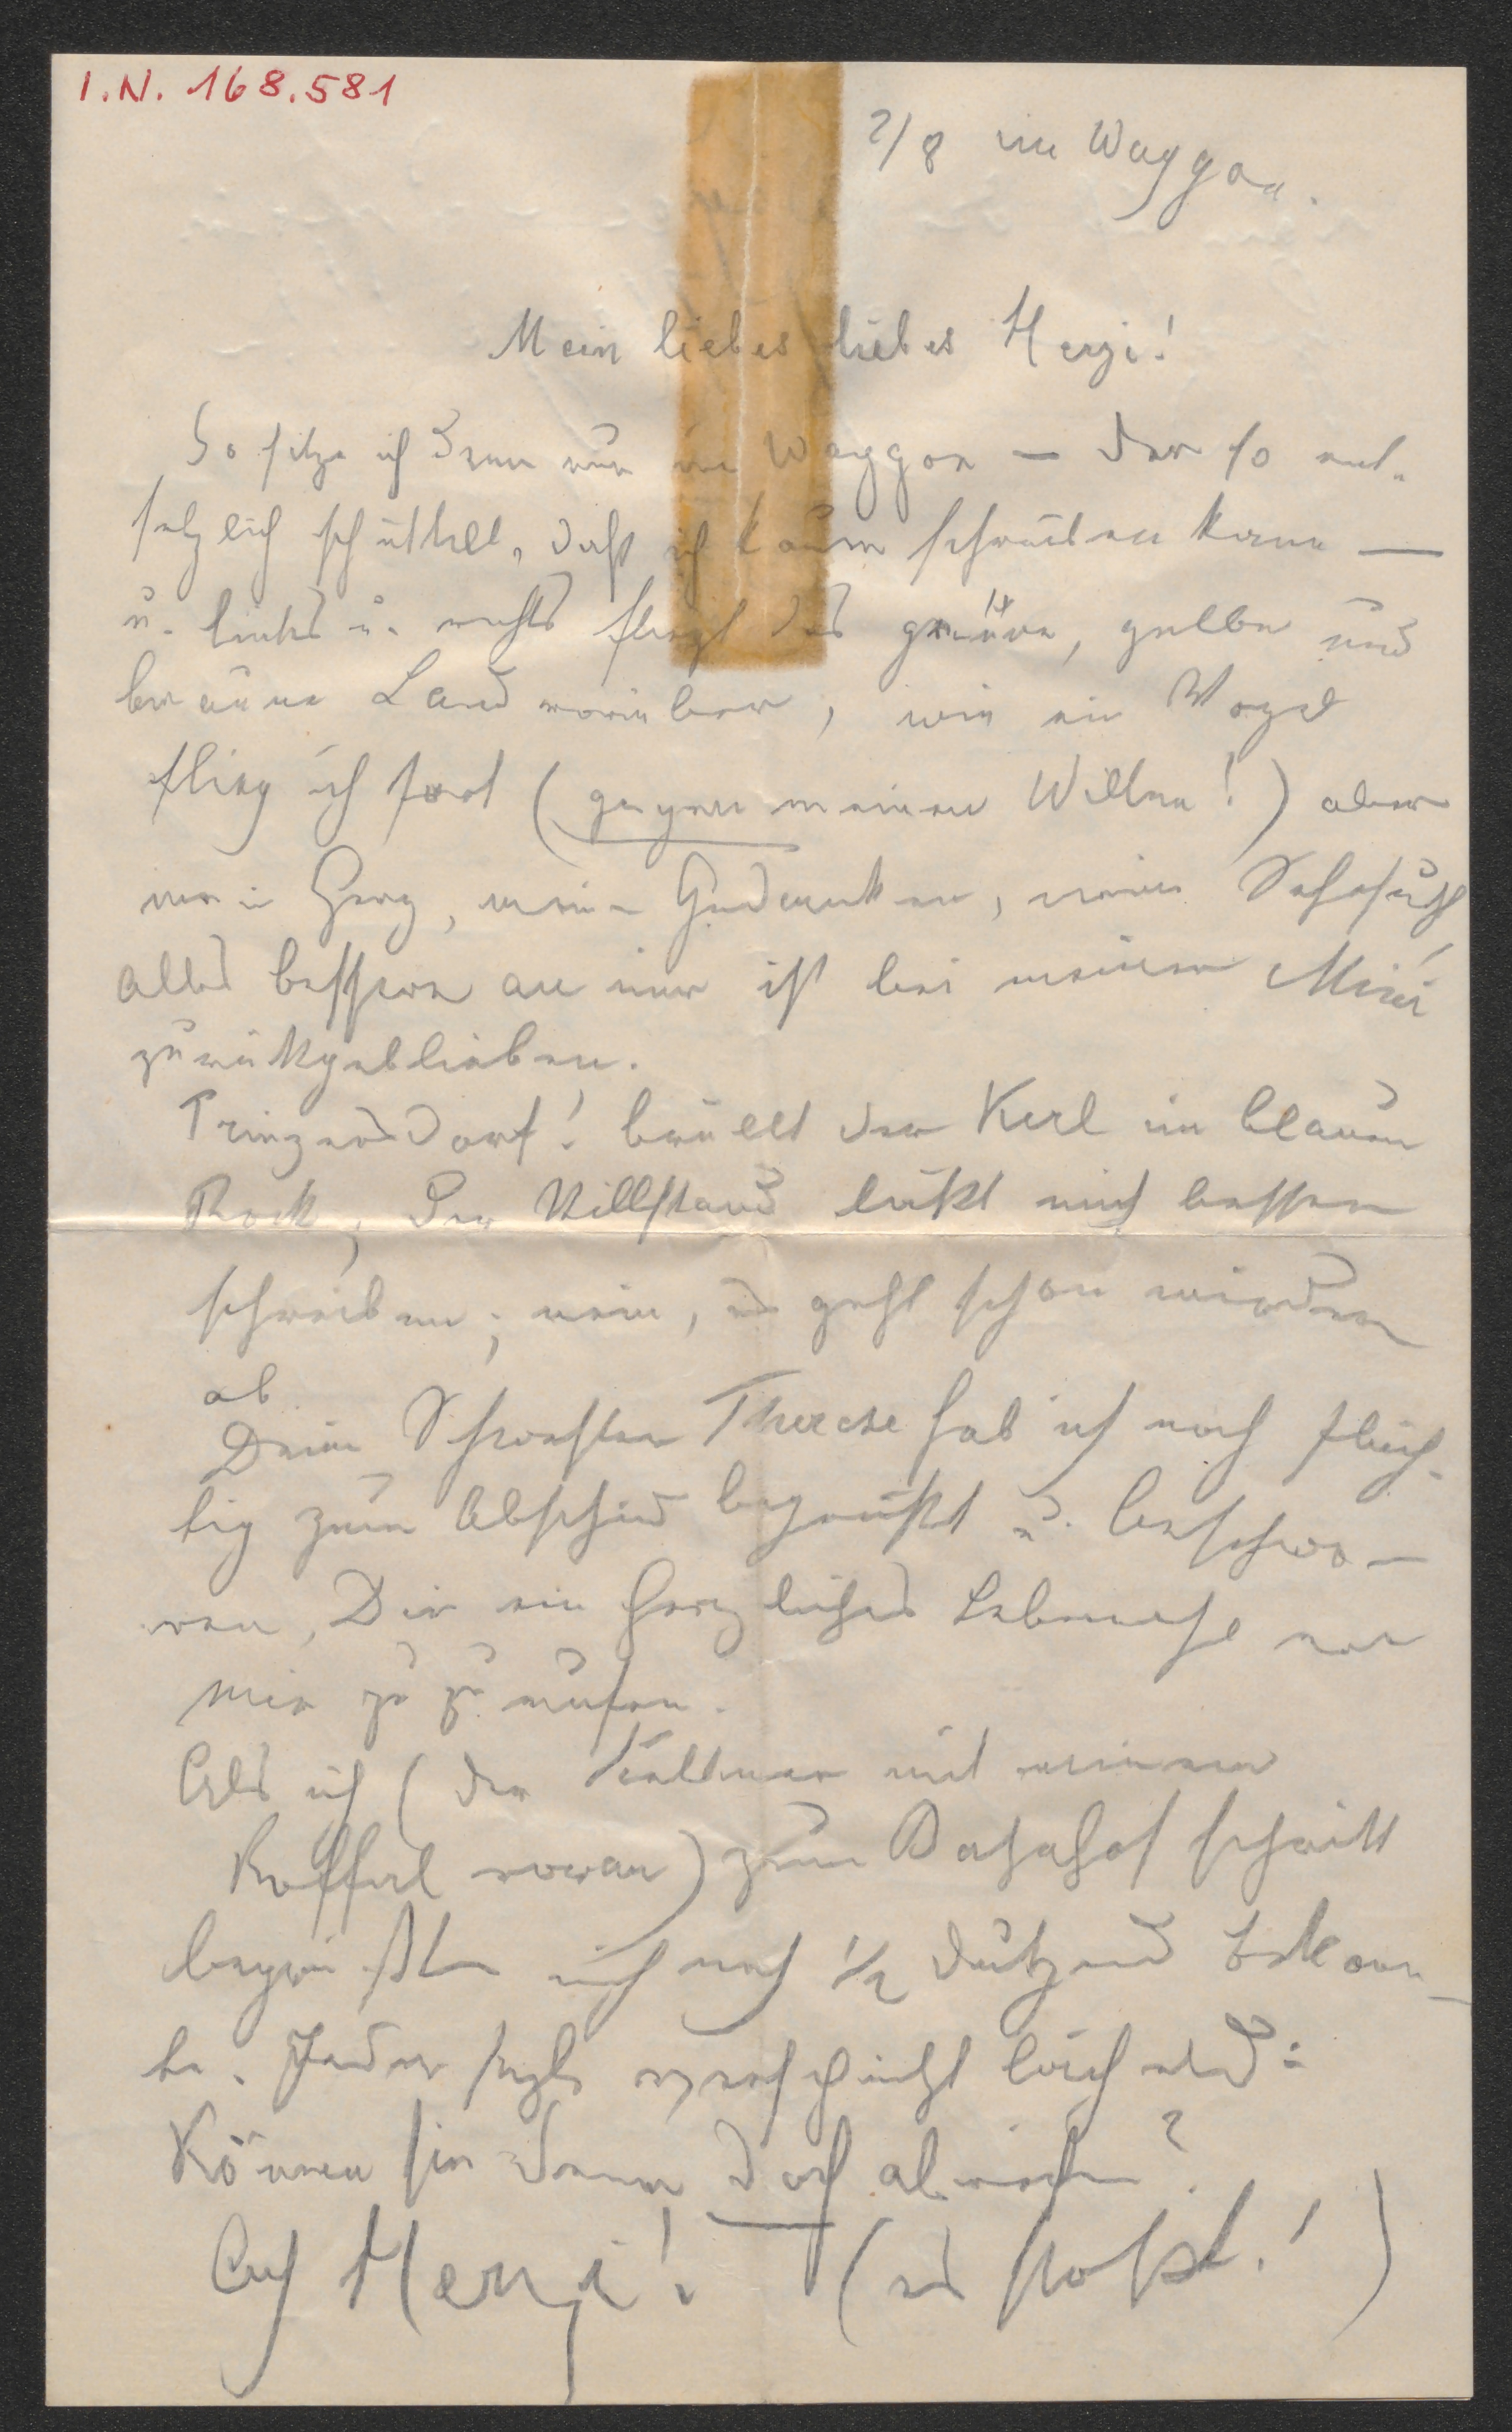 I.N. 168.581
2/8 im Waggon.
Mein liebes liebes Herzi!
So sitze ich denn nun im Waggon — der so ent-
setzlich schüttelt, daß ich kaum schreiben kann —
u. links u. rechts fliegt das grüne, gelbe und
braune Land vorüber, wie ein Vogel
flieg ich fort (gegen meinen Willen!) aber
mein Herz, meine Gedanken, meine Sehnsucht
alles bessere an mir ist bei meiner Mizi
zurükgeblieben.
Prinzendorf! brüllt der Kerl im blauen
Rock, der Stillstand läßt mich besser
schreiben; nein, es geht schon wieder
ab
Deine Schwester Therese hab ich noch flüch-
tig zum Abschied begrüßt u. beschwo-
ren, Dir ein herzliches Lebewohl von
mir zu zu rufen.
Als ich (der Kellner mit meinem
Kofferl voran) zum Bahnhof schritt
begrüßten mich noch ½ dutzend Bekann-
te. Jeder sagte verschmitzt lächelnd:
Können Sie denn doch abreisen?
Ach Herzi! (es stoßt!)